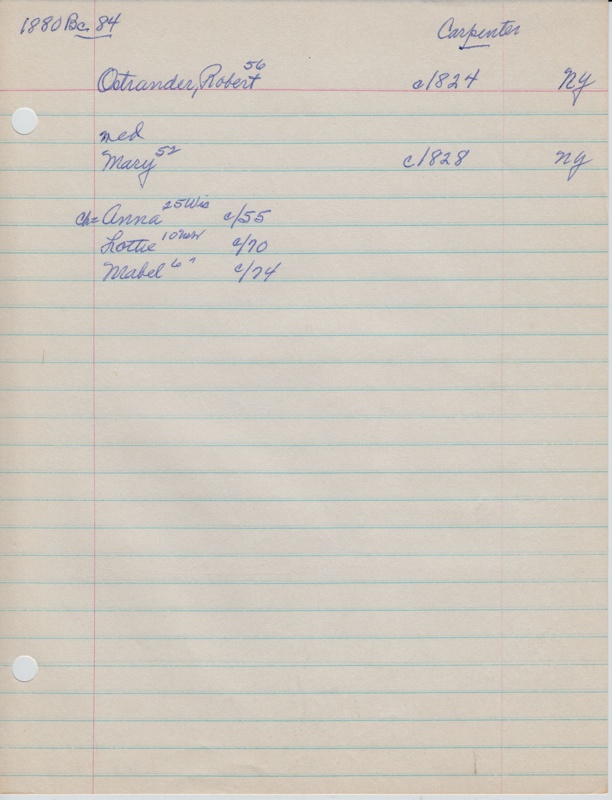 1880 Bc 84 Carpenter
Ostrander, Robert 56 c/1824 NY
med
Mary 52 c/1828 NY
ch= Anna 25 Wis c/55
Lottie 10 c/70
Mabel 6 " c/74